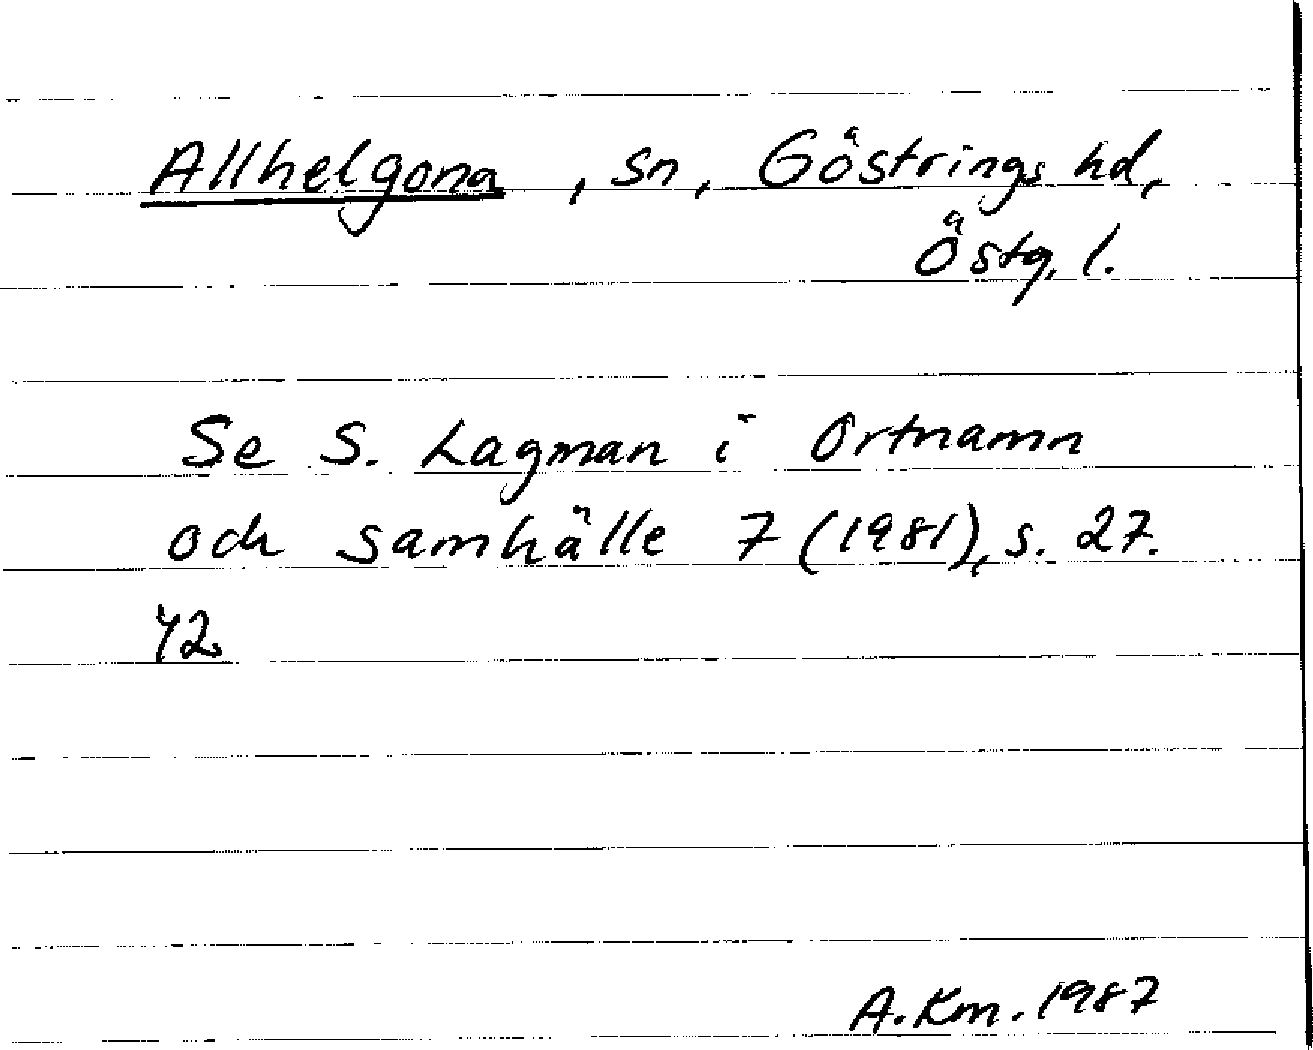 Allhelgona, sn, Göstrings hd,
Östg. l.
Se S. Lagman i Ortnamn
och samhälle 7 (1981), s. 27.
42.
A. Km. 1987